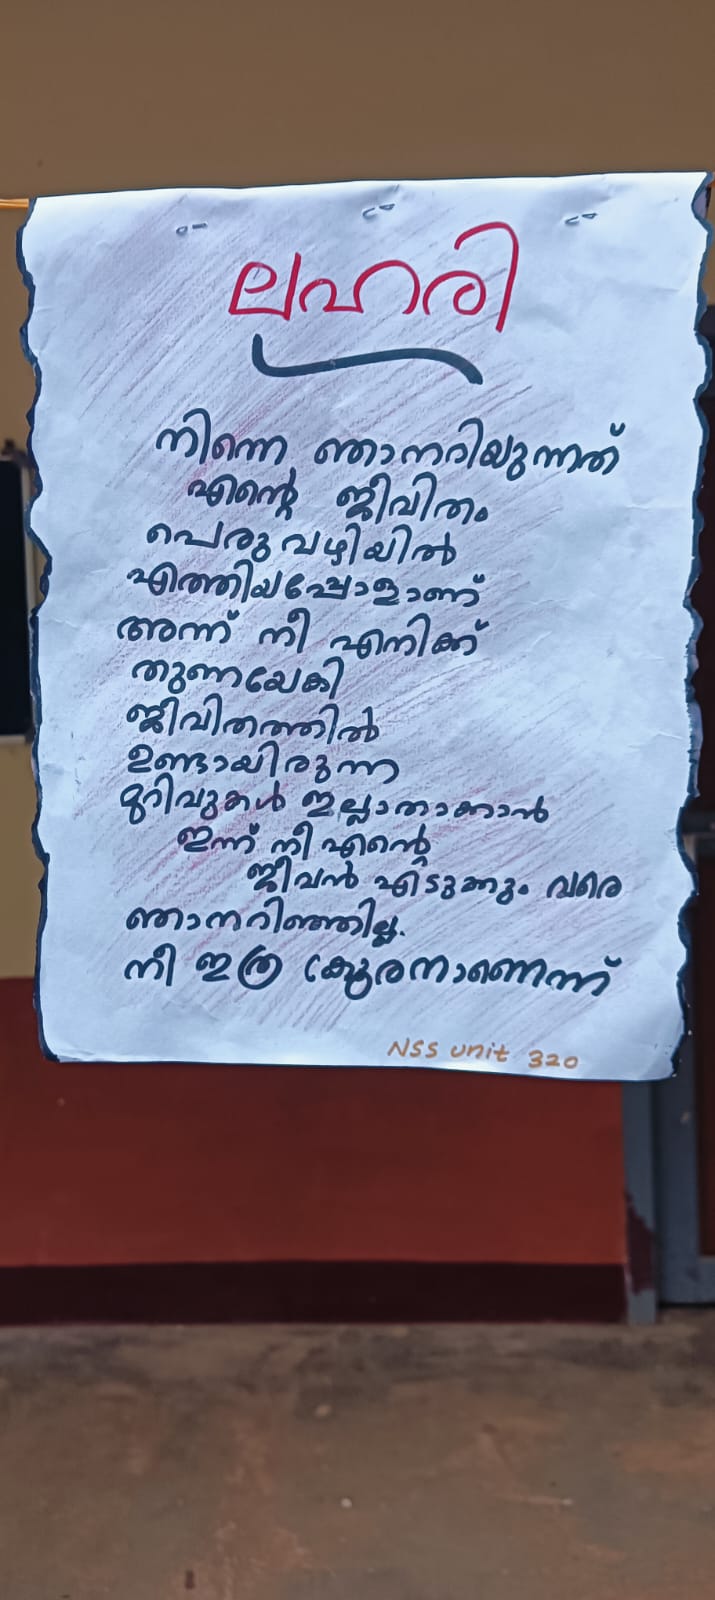 ലഹരി
നിന്നെ ഞാനറിയുന്നത്
എന്റെ ജീവിതം
പെരുവഴിയിൽ
എത്തിയപ്പോളാണ്
അന്ന് നീ എനിക്ക്
തുണയേകി
ജീവിതത്തിൽ
ഉണ്ടായിരുന്ന
മുറിവുകൾ ഇല്ലാതാക്കാൻ
ഇന്ന് നീ എന്റെ
ജീവൻ എടുക്കും വരെ
ഞാനറിഞ്ഞില്ല.
നീ ഇത്ര ക്രൂരനാണെന്ന്
NSS unit 320